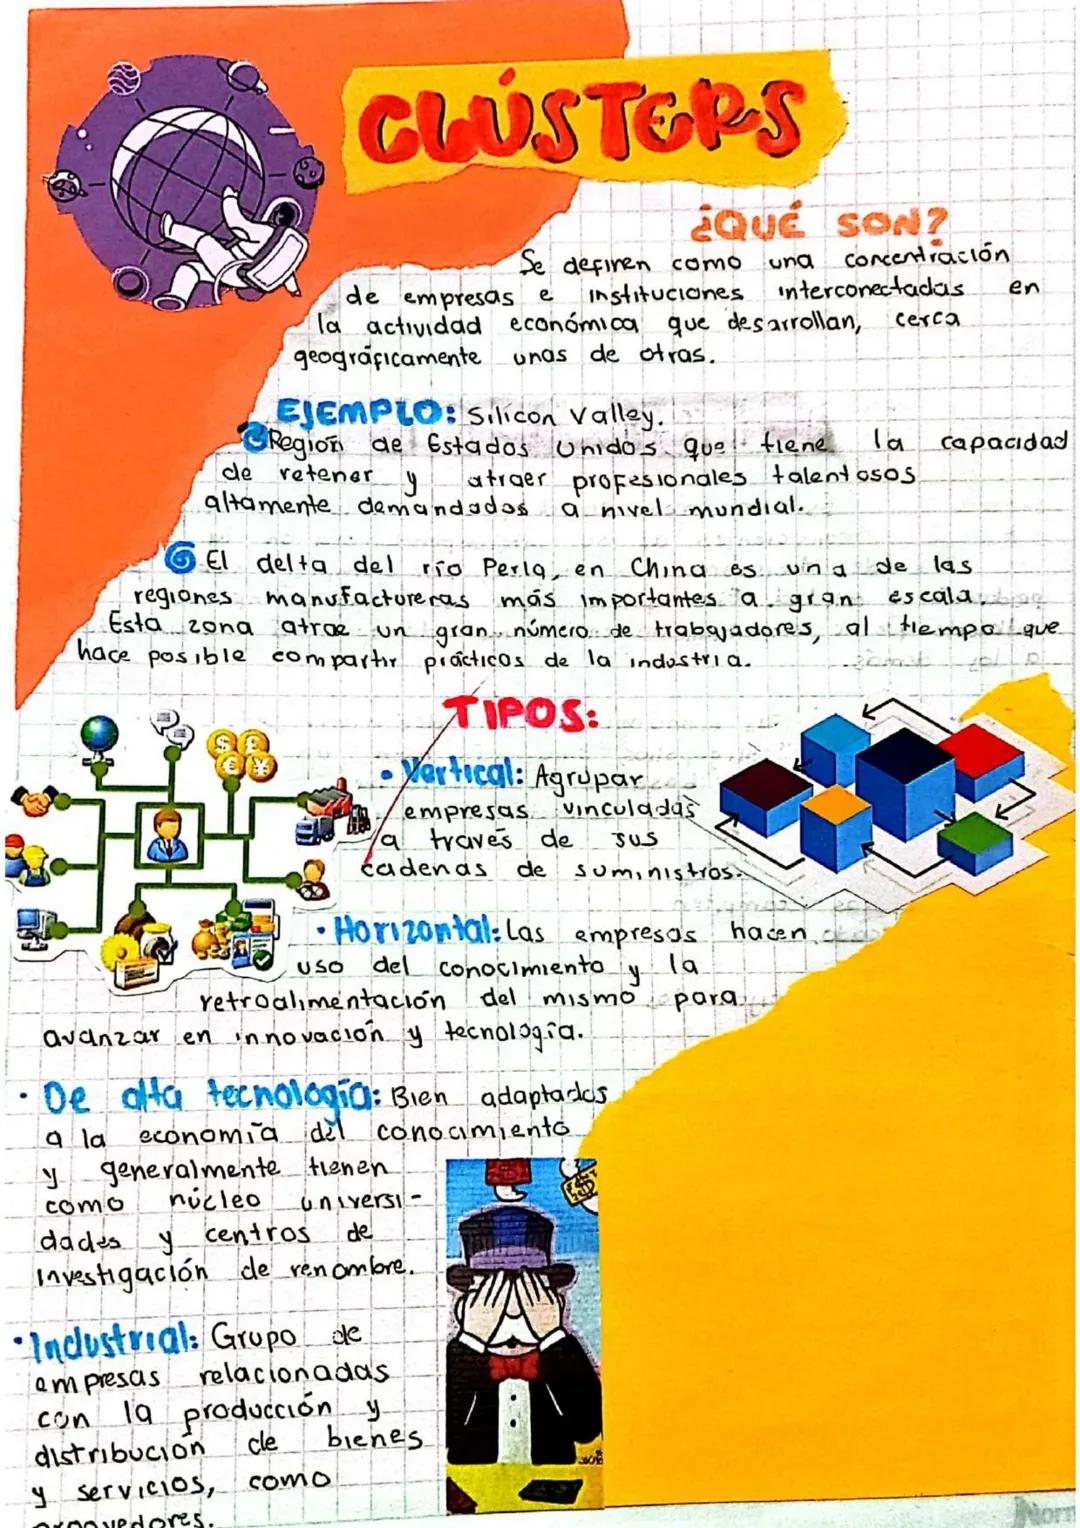 CLÚSTERS
¿QUÉ SON?
Se definen como una concentración
de empresas e instituciones interconectadas en
la actividad económica que desarrollan, cerca
geográficamente unas de otras.
EJEMPLO: Silicon Valley.
Región de Estados Unidos que tiene la capacidad
de retener y atraer profesionales talentosos
altamente demandados a nivel mundial.
El delta del río Perla, en China es una de las
regiones manufactureras más importantes a gran escala.
Esta zona atrae un gran número de trabajadores, al tiempo que
hace posible compartir prácticas de la industria.
TIPOS:
• Vertical: Agrupar
empresas vinculadas
a través de sus
cadenas de suministros.
• Horizontal: Las empresas hacen
uso del conocimiento y la
retroalimentación del mismo para
avanzar en innovación y tecnología.
• De alta tecnología: Bien adaptados
a la economía del conocimiento
y generalmente tienen
como núcleo universi-
dades y centros de
investigación de renombre.
• Industrial: Grupo de
empresas relacionadas
con la producción y
distribución de bienes
y servicios, como
proovedores.
Norm